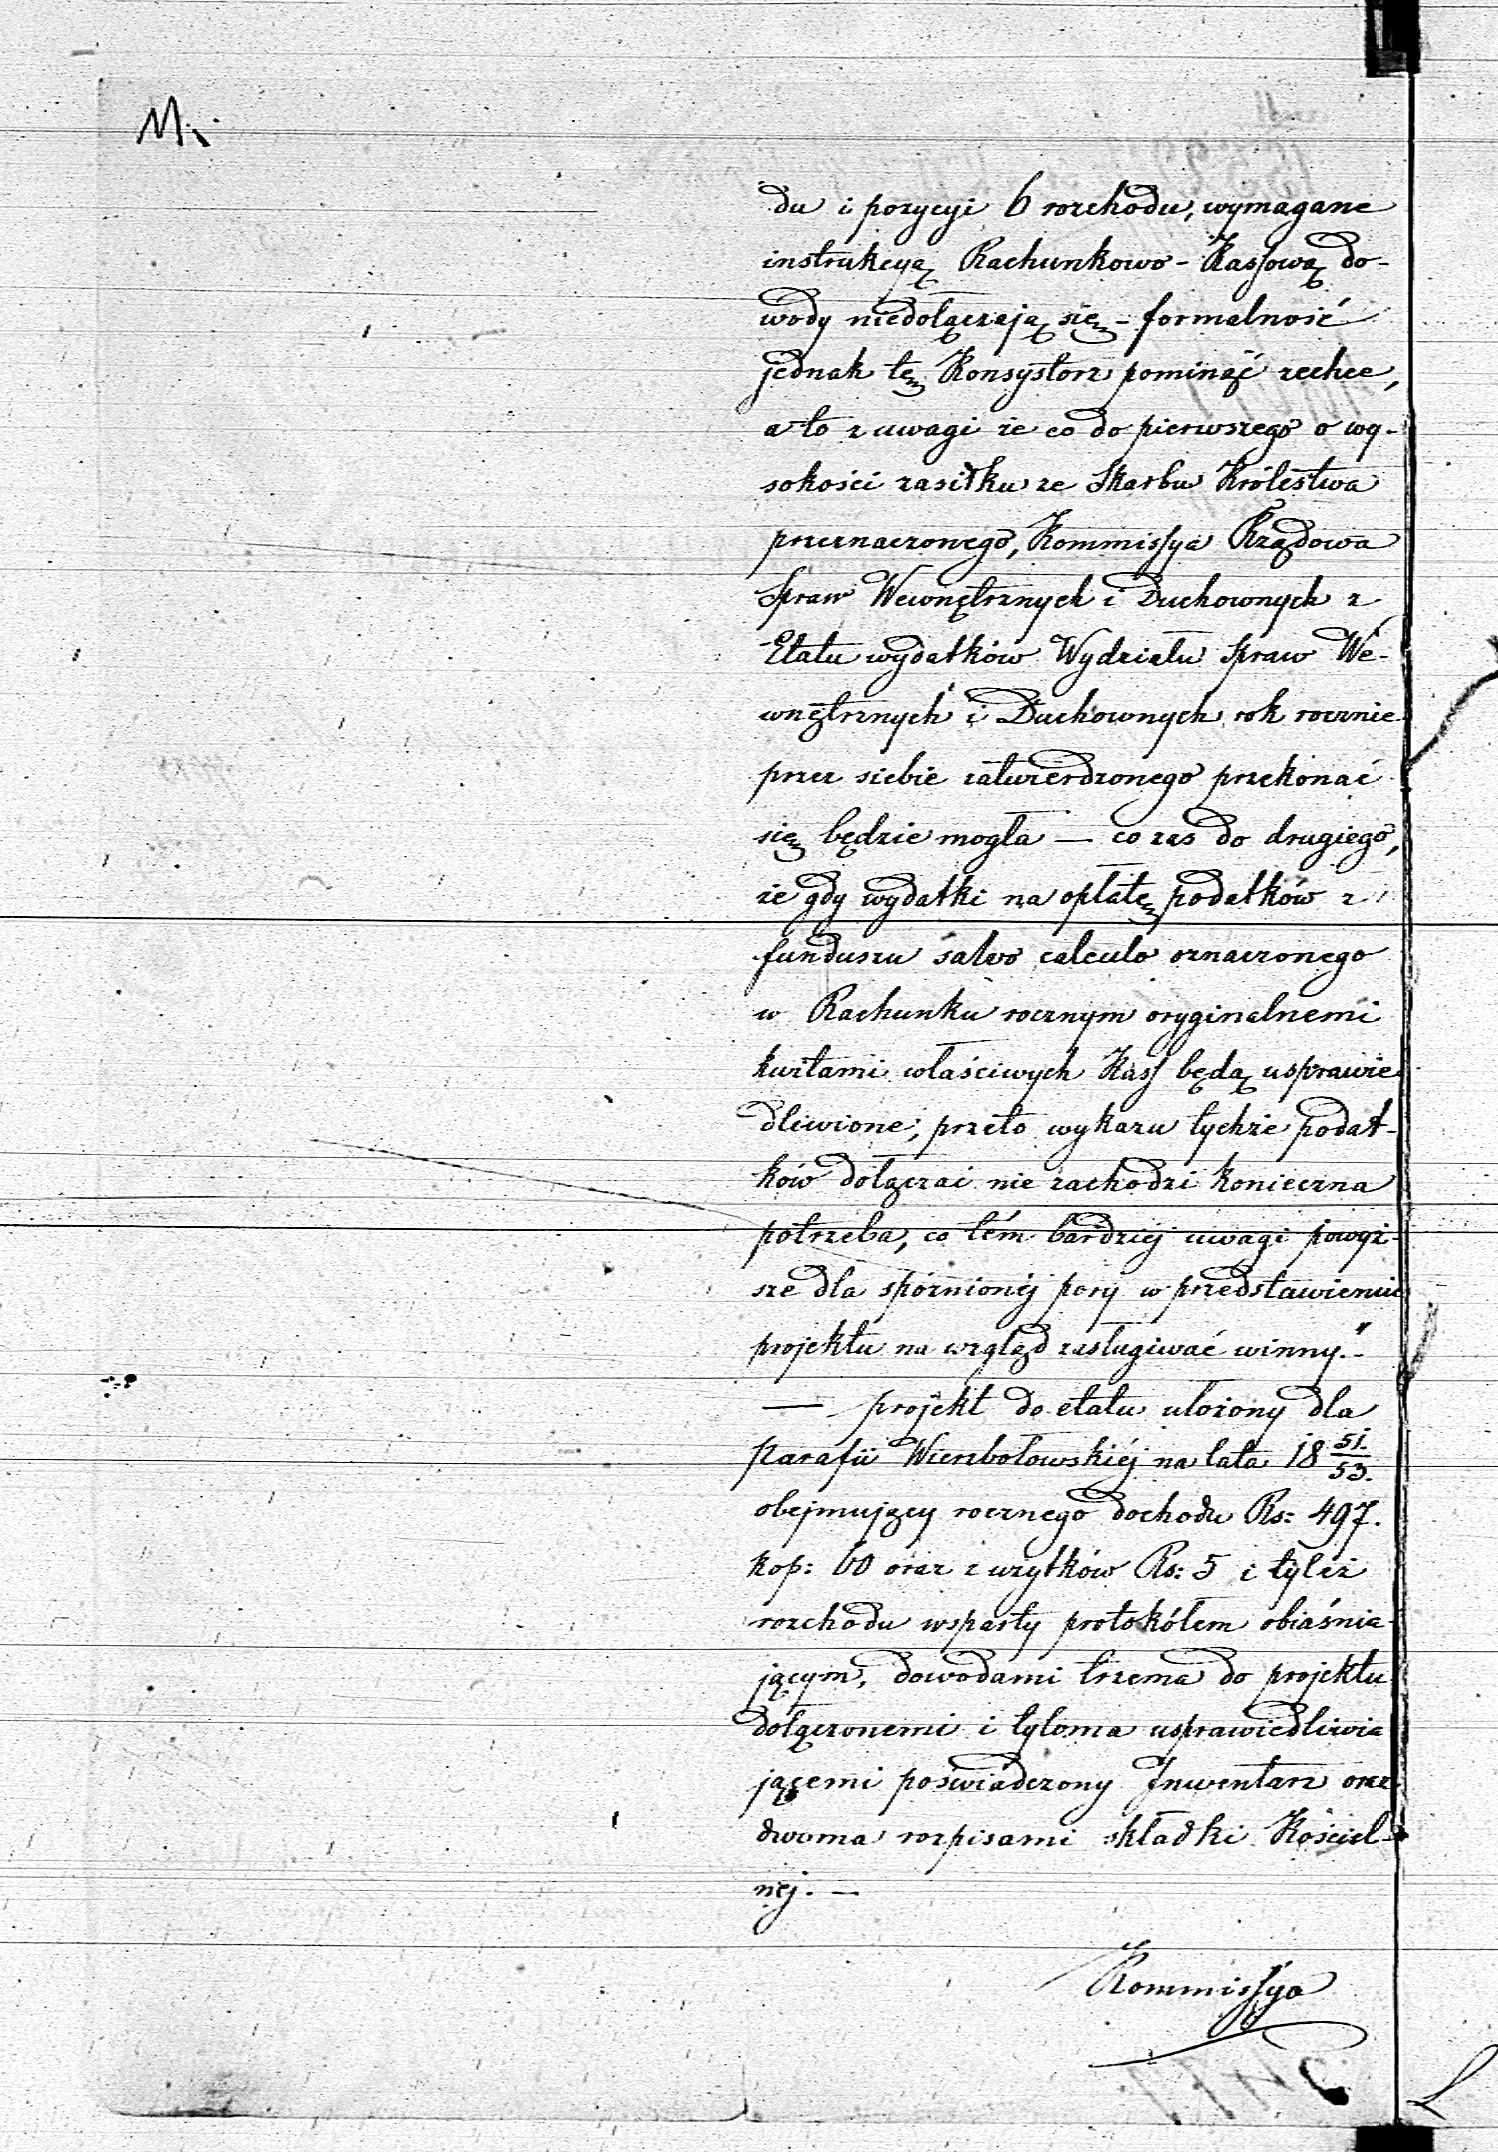 M.
du i pozycyi 6 rozchodu, wymagane
instrukcyą Rachunkowo-Kassową do-
wody niedołączają się – formalność
jednak tę Konsystorz pominąć zechce,
a to z uwagi że co do pierwszego o wy-
sokości zasiłku ze Skarbu Królestwa
przeznaczonego, Kommissya Rządowa
Spraw Wewnętrznych i Duchownych z
Etatu wydatków Wydziału Spraw We-
wnętrznych i Duchownych rok rocznie
przez siebie zatwierdzonego przekonać
się będzie mogła — co zas do drugiego,
że gdy wydatki na opłatę podatków z
funduszu salvo calculo oznaczonego
w Rachunku rocznym oryginalnemi
kwitami właściwych Kass będą usprawie
dliwione; przeto wykazu tychże podat-
ków dołączać nie zachodzi konieczna
potrzeba, co tém bardziej uwagi powyż-
sze dla spóznionéj pory w przedstawieniu
projektu na wzgląd zasługiwać winny."
— projekt do etatu ułożony dla
Parafii Wierzbołowskiéj na lata 18 51/53.
obejmujący rocznego dochodu Rs: 497.
kop: 60 oraz z użytków Rs: 5 i tyleż
rozchodu wsparty protokółem obiaśnia-
jącym, dowodami trzema do projektu
dołączonemi i tyloma usprawiedliwia
jącemi poświadczony Inwentarz oraz
dwoma rozpisami składki Kościel-
néj. —
Kommissya